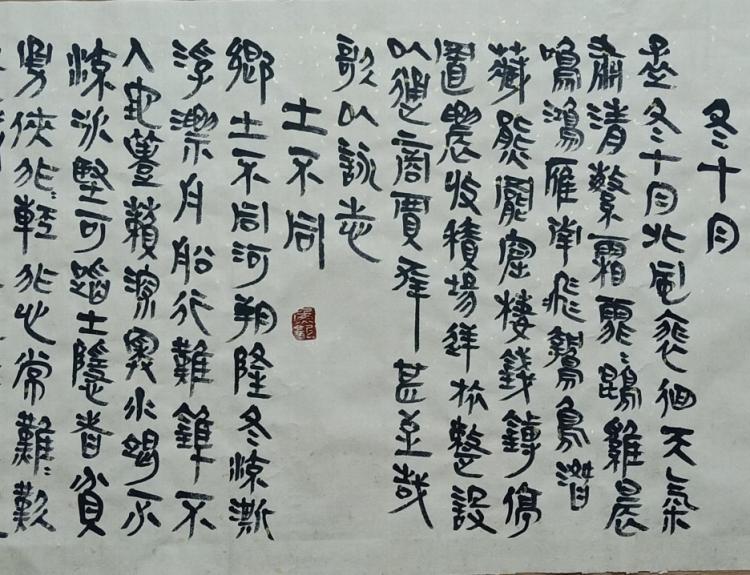 冬十月
孟冬十月北風裵徊天氣
肅清繁霜霏〻鵾雞晨
鳴鴻雁南飛鷙鳥潛
藏熊羆窟棲錢鎛停
置農收積場逆旅整設
以通商賈幸甚至哉
歌以詠志
土不同
鄉土不同河朔隆冬流澌
浮漂舟船行難錐不
入地蘴藾深奧水竭不
流冰堅可蹈士隱者貧
勇俠非輕非心常難歎